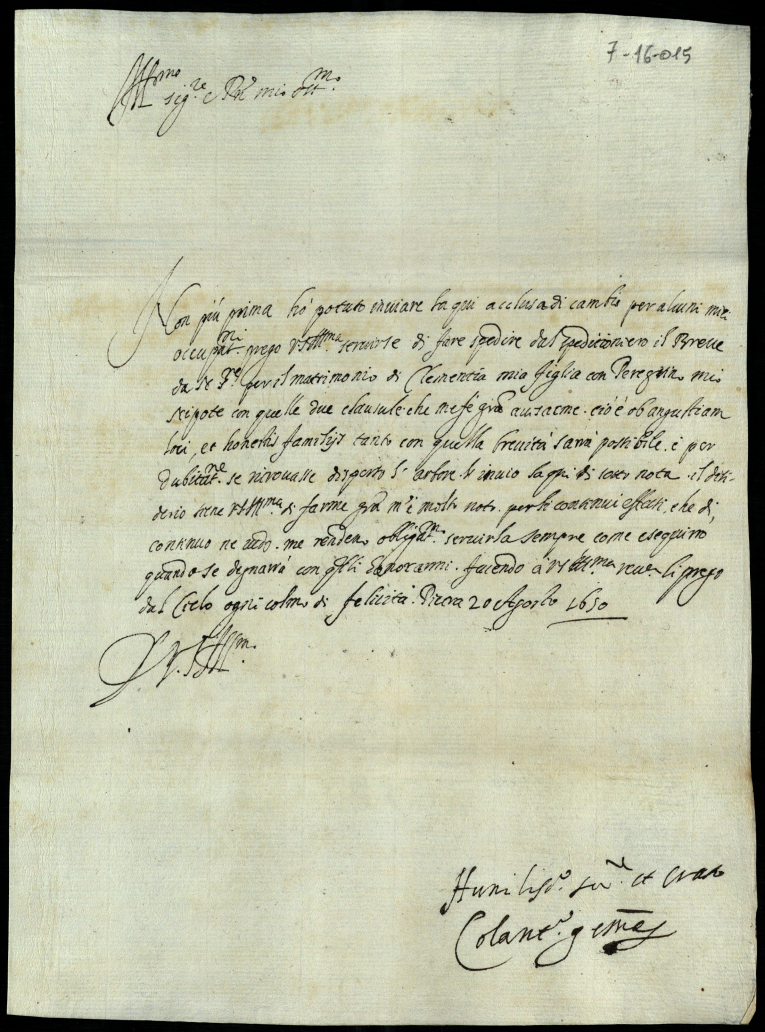 7-16-015
Ill.mo
Sig.re e P.ne mio oss.mo
Non più prima hò potuto inviare la qui acclusa di cambio per alcuni miei
occupat.ni prego V.S. Ill.ma servirse di fare spedire dal speditioniero il Breve
da N. S.re per il matrimonio di Clementia mia figlia con Peregrino mio
Nipote con quelle due clausule che me fè gra. avisarme. cio è ob angustiam
loci, et honestis familijs tanto con quella brevità sarrà possibile. e per
dubitat.ne se ritrovasse disperso l'arbore. l'invio la qui di sotto nota. il desi-
derio tiene V.S. Ill.ma di farme gra. m'è molto noto. per li continui effetti. che di
continuo ne vedo. me rendeno obligat.mo servirla sempre come eseguirò
quando se degnarrà con q.lli honorarmi. facendo à V.S. Ill.ma rever. li prego
dal Cielo ogni colmo di felicità. 20 Agosto 1650
D. V.S. Ill.ma
Humiliss.o ser.re et
Colant.o